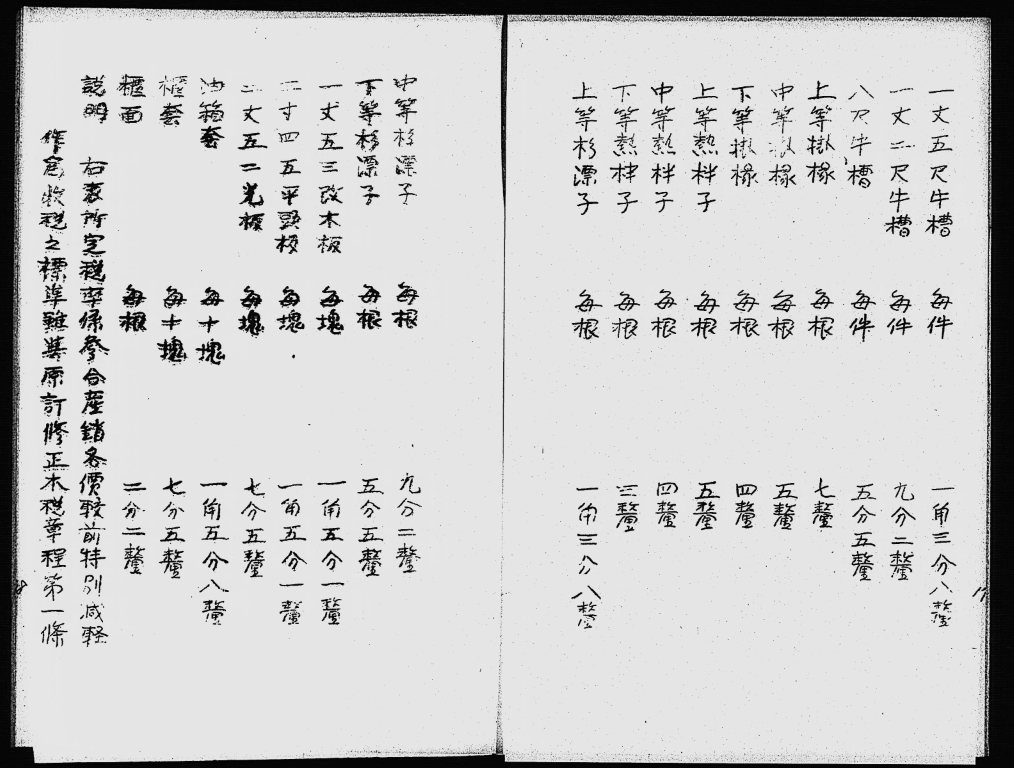 一丈五尺牛槽 每件 一角三分八釐
一丈二尺牛槽 每件 九分二釐
八尺牛槽 每件 五分五釐
上等掛椽 每根 七釐
中等掛椽 每根 五釐
下等掛椽 每根 四釐
上等熱柈子 每根 五釐
中等熱柈子 每根 四釐
下等熱柈子 每根 三釐
上等杉漂子 每根 一角三分八釐
中等杉漂子 每根 九分二釐
下等杉漂子 每根 五分五釐
一丈五三改木板 每塊 一角五分一釐
二寸四五平頭板 每塊 一角五分一釐
二丈五二光板 每塊 七分五釐
油箱套 每十塊 一角五分八釐
櫃套 每十塊 七分五釐
櫃面 每根 二分二釐
說明 右表所定稅率係參合產銷各價較前特別減輕
作為收稅之標準雖與原訂修正木稅章程第一條